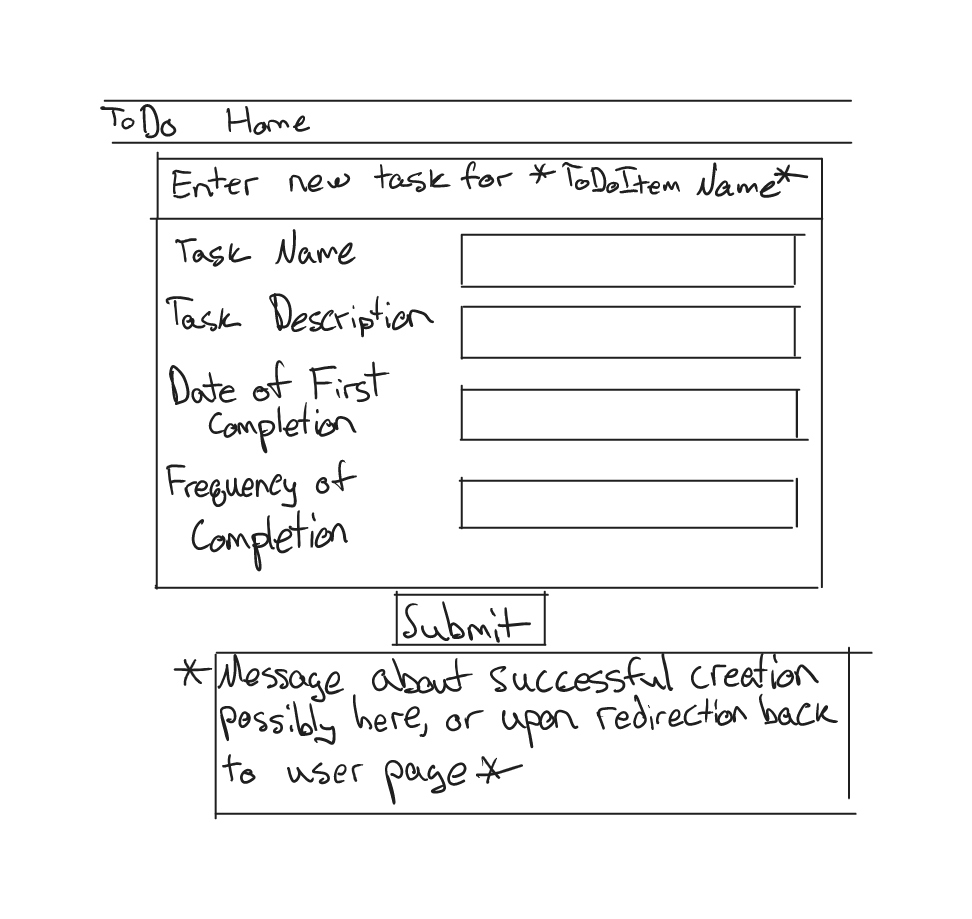 ToDo Home
Enter new task for *ToDoItem Name*
Task Name
Task Description
Date of First
Completion
Frequency of
Completion
Submit
*Message about successful creation
possibly here, or upon redirection back
to user page*